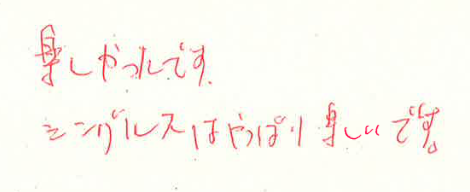 楽しかったです
シングルスはやっぱり楽しいです。